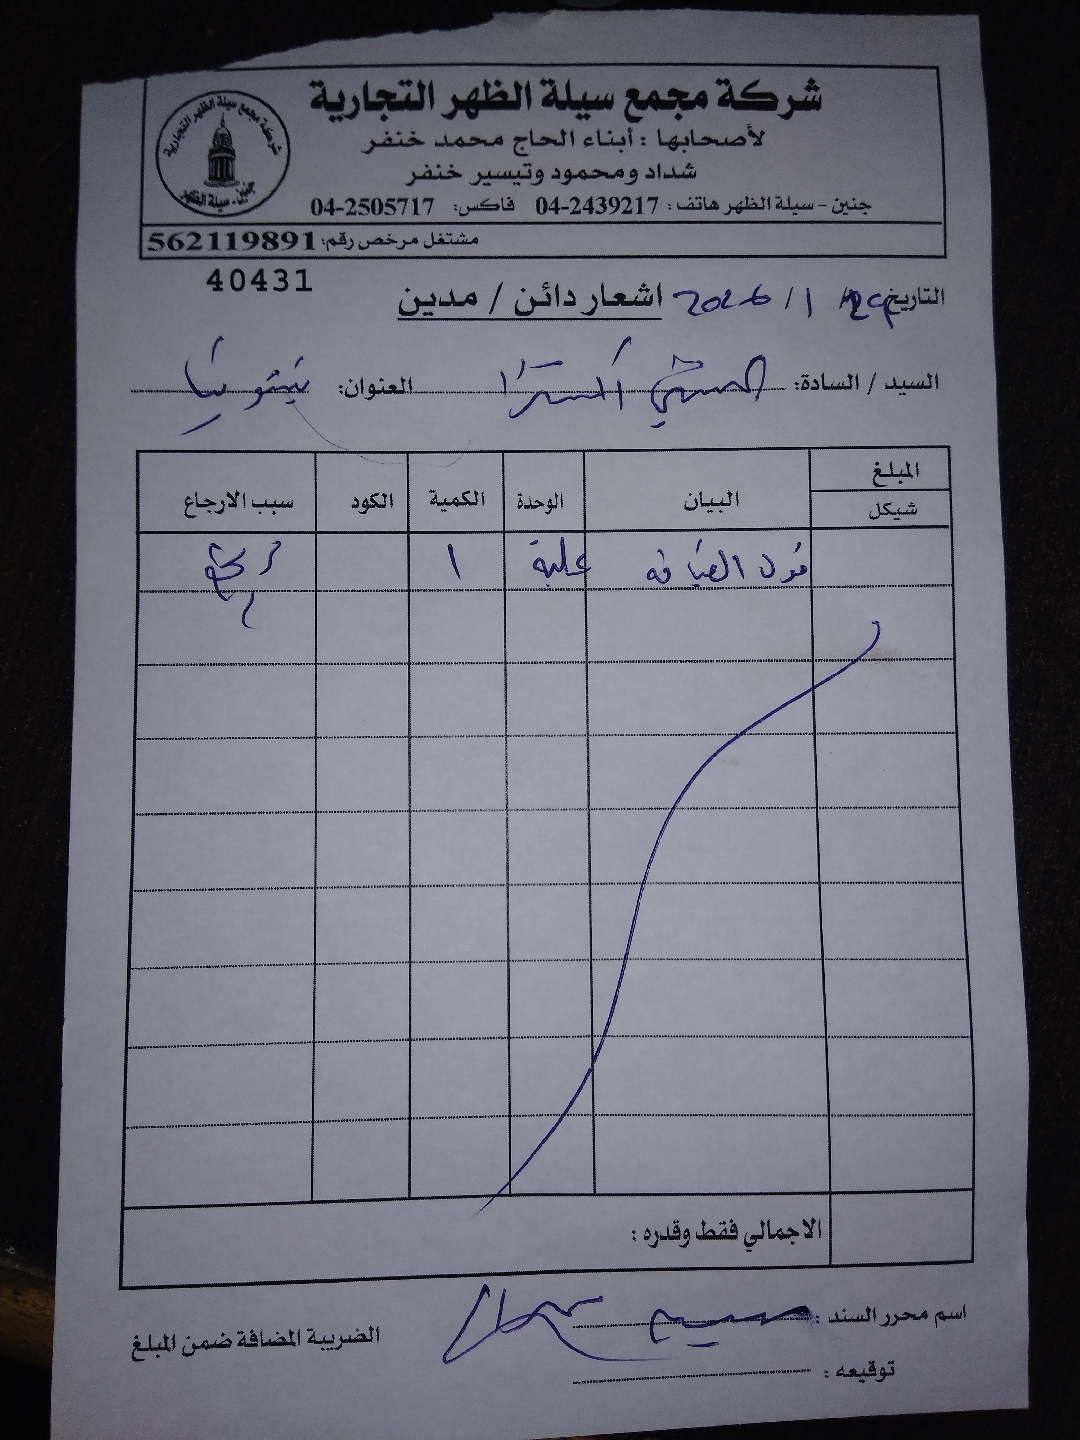 شركة مجمع سيلة الظهر التجارية
لأصحابها : أبناء الحاج محمد خنفر
شداد ومحمود وتيسير خنفر
جنين - سيلة الظهر هاتف : 04-2439217 فاكس: 04-2505717
مشتغل مرخص رقم: 562119891
شركة مجمع سيلة الظهر التجارية
جنين - سيلة الظهر
40431
التاريخ / 1 / 2026
اشعار دائن / مدين
السيد / السادة: العنوان:
المبلغ
شيكل البيان الوحدة الكمية الكود سبب الارجاع
فول الضيافه علبة 1
الاجمالي فقط وقدره :
اسم محرر السند :
توقيعه :
الضريبة المضافة ضمن المبلغ